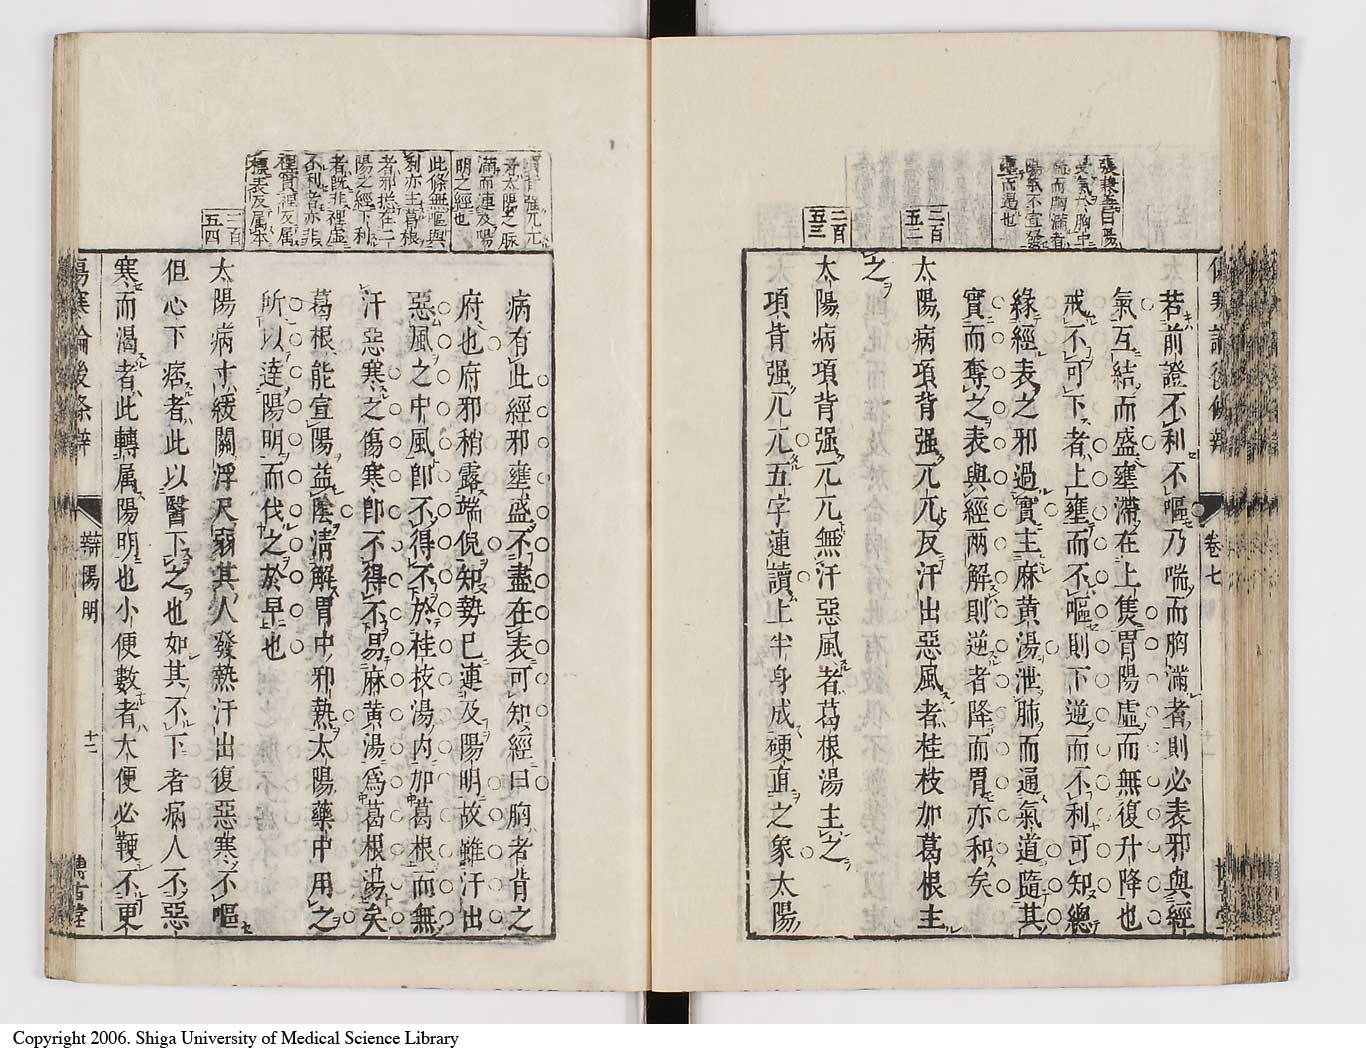 傷寒論後條辨
卷七
博古堂
張兼善曰陽
受氣於胸中
喘而胸滿者
陽氣不宣發
壅而逆也
若前證不利不嘔乃喘而胸滿者則必表邪與經
氣互結而盛壅滯在上隻胃陽虛而無復升降也
戒不可下者上壅而不嘔則下逆而不利可知總
緣經表之邪過實主麻黃湯泄肺而通氣道隨其
實而奪之表與經兩解則逆者降而胃亦和矣
二百五二
太陽病項背强几几反汗出惡風者桂枝加葛根主
之
二百五三
太陽病項背强几几無汗惡風者葛根湯主之
項背强几几五字連讀上半身成硬直之象太陽
項背强几几
者太陽之脉
滿而連及陽
明之經也
此條無嘔與
利亦主葛根
者邪摠在二
陽之經下利
者既非裡虛
不利者亦非
裡實裡反属
標表反属本
病有此經邪壅盛不盡在表可知經曰胸者背之
府也府邪稍露端倪知勢已連及陽明故雖汗出
惡風之中風卽不得不於桂枝湯内加葛根而無
汗惡寒之傷寒卽不得不易麻黃湯爲葛根湯矣
葛根能宣陽益陰清解胃中邪熱太陽藥中用之
所以達陽明而伐之於早也
二百五四
太陽病寸緩關浮尺弱其人發熱汗出復惡寒不嘔
但心下痞者此以醫下之也如其不下者病人不惡
寒而渴者此轉属陽明也小便數者大便必鞕不更
傷寒論後條辨
辯陽明
十二
博古堂
Copyright 2006. Shiga University of Medical Science Library